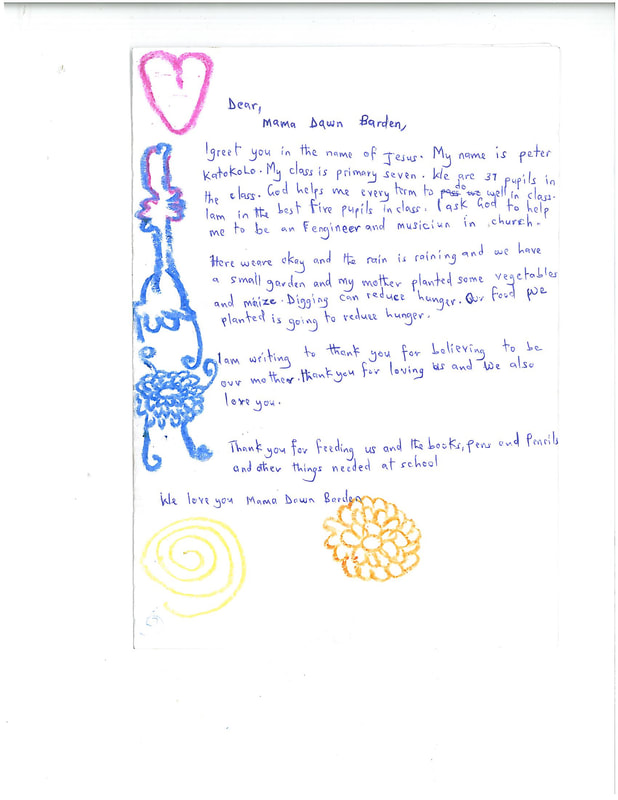 Dear,
Mama Dawn Barden,
I greet you in the name of Jesus. My name is peter
Katokoko. My class is primary seven. We are 37 pupils in
the class. God helps me every term to do well in class.
Iam in the best Five pupils in class. I ask God to help
me to be an Fengineer and musiciun in church.
Here weare okay and the rain is raining and we have
a small garden and my mother planted some vegetables
and maize. Digging can reduce hunger. Our food we
planted is going to reduce hunger.
Iam writing to thank you for believing to be
our mother. thank you for loving us and we also
love you.
Thank you for feeding us and the books, pens and Pencils
and other things needed at school
We love you Mama Dawn Barden